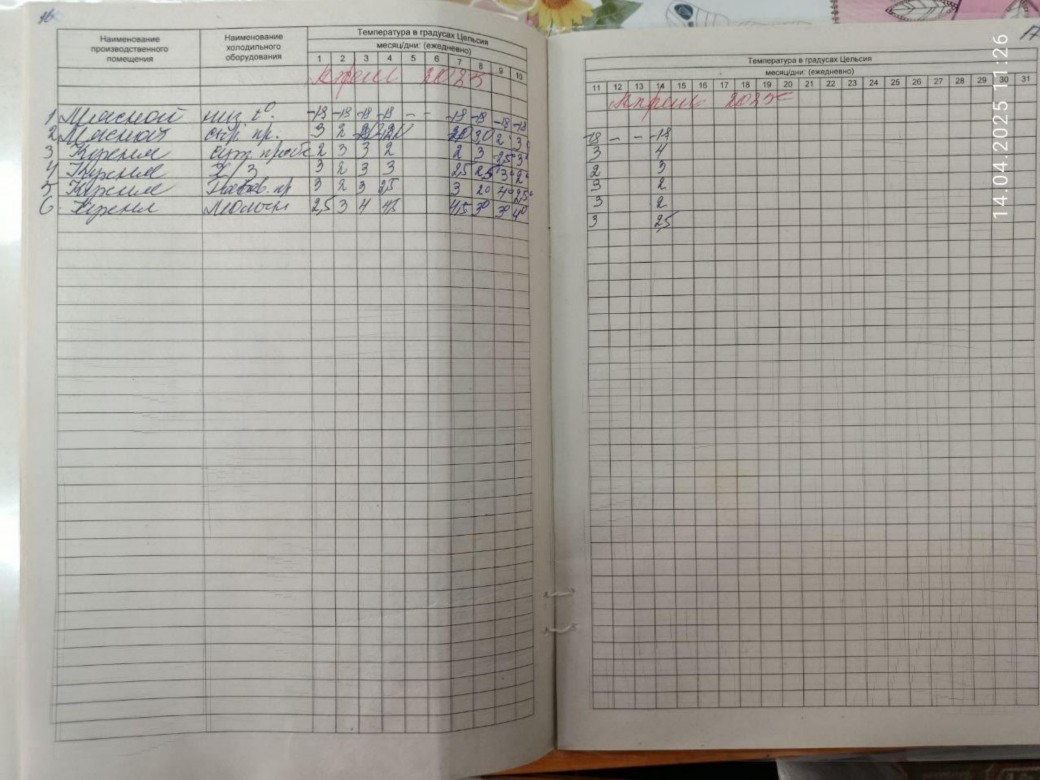 16
Наименование производственного помещения
Наименование холодильного оборудования
Температура в градусах Цельсия
месяц/дни: (ежедневно)
1 2 3 4 5 6 7 8 9 10
Апрель 2025
1 Мясной низ t°. -18 -18 -18 -18 - - -18 -18 -18 -18
2 Мясной сып пр. 3 2
3 Кухня сут. проб 2 3 3 2 2 3 2,5 3°
4 Кухня Х/З 3 2 3 3 2,5 2,5 3° 2°
5 Кухня 3 2 3 2,5 3 2° 4° 2,5°
6 Кухня Молочн 2,5 3 4 4,5 3° 3° 4°
17
Температура в градусах Цельсия
месяц/дни: (ежедневно)
11 12 13 14 15 16 17 18 19 20 21 22 23 24 25 26 27 28 29 30 31
Апрель 2025
-18 - - -18
3 4
2 3
3 2
3 2
3 2,5